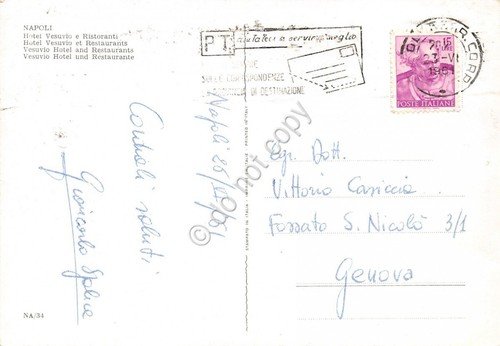 NAPOLI
Hotel Vesuvio e Ristoranti
Hotel Vesuvio et Restaurants
Vesuvio Hotel und Restaurants
Vesuvio Hotel and Restaurants
PT aiutateci a servirvi meglio
SULLE CORRISPONDENZE
DI DESTINAZIONE
15
POSTE ITALIANE
Napoli
Cordiali saluti
Giancarlo
Egr. Dott.
Vittorio Casiccia
Fossato S. Nicolò 3/1
Genova
NA/34
do not copy